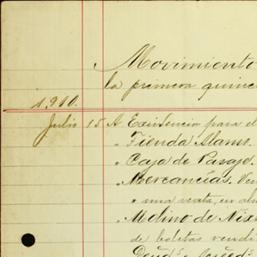 Movimiento
la primera quince
1,910.
Julio 15 A Existencia para el
" Tienda Alamo.
" Caja de Parajo.
" Mercancías. Ven
a una venta, en
" Molino de Nix
de boletas vendi